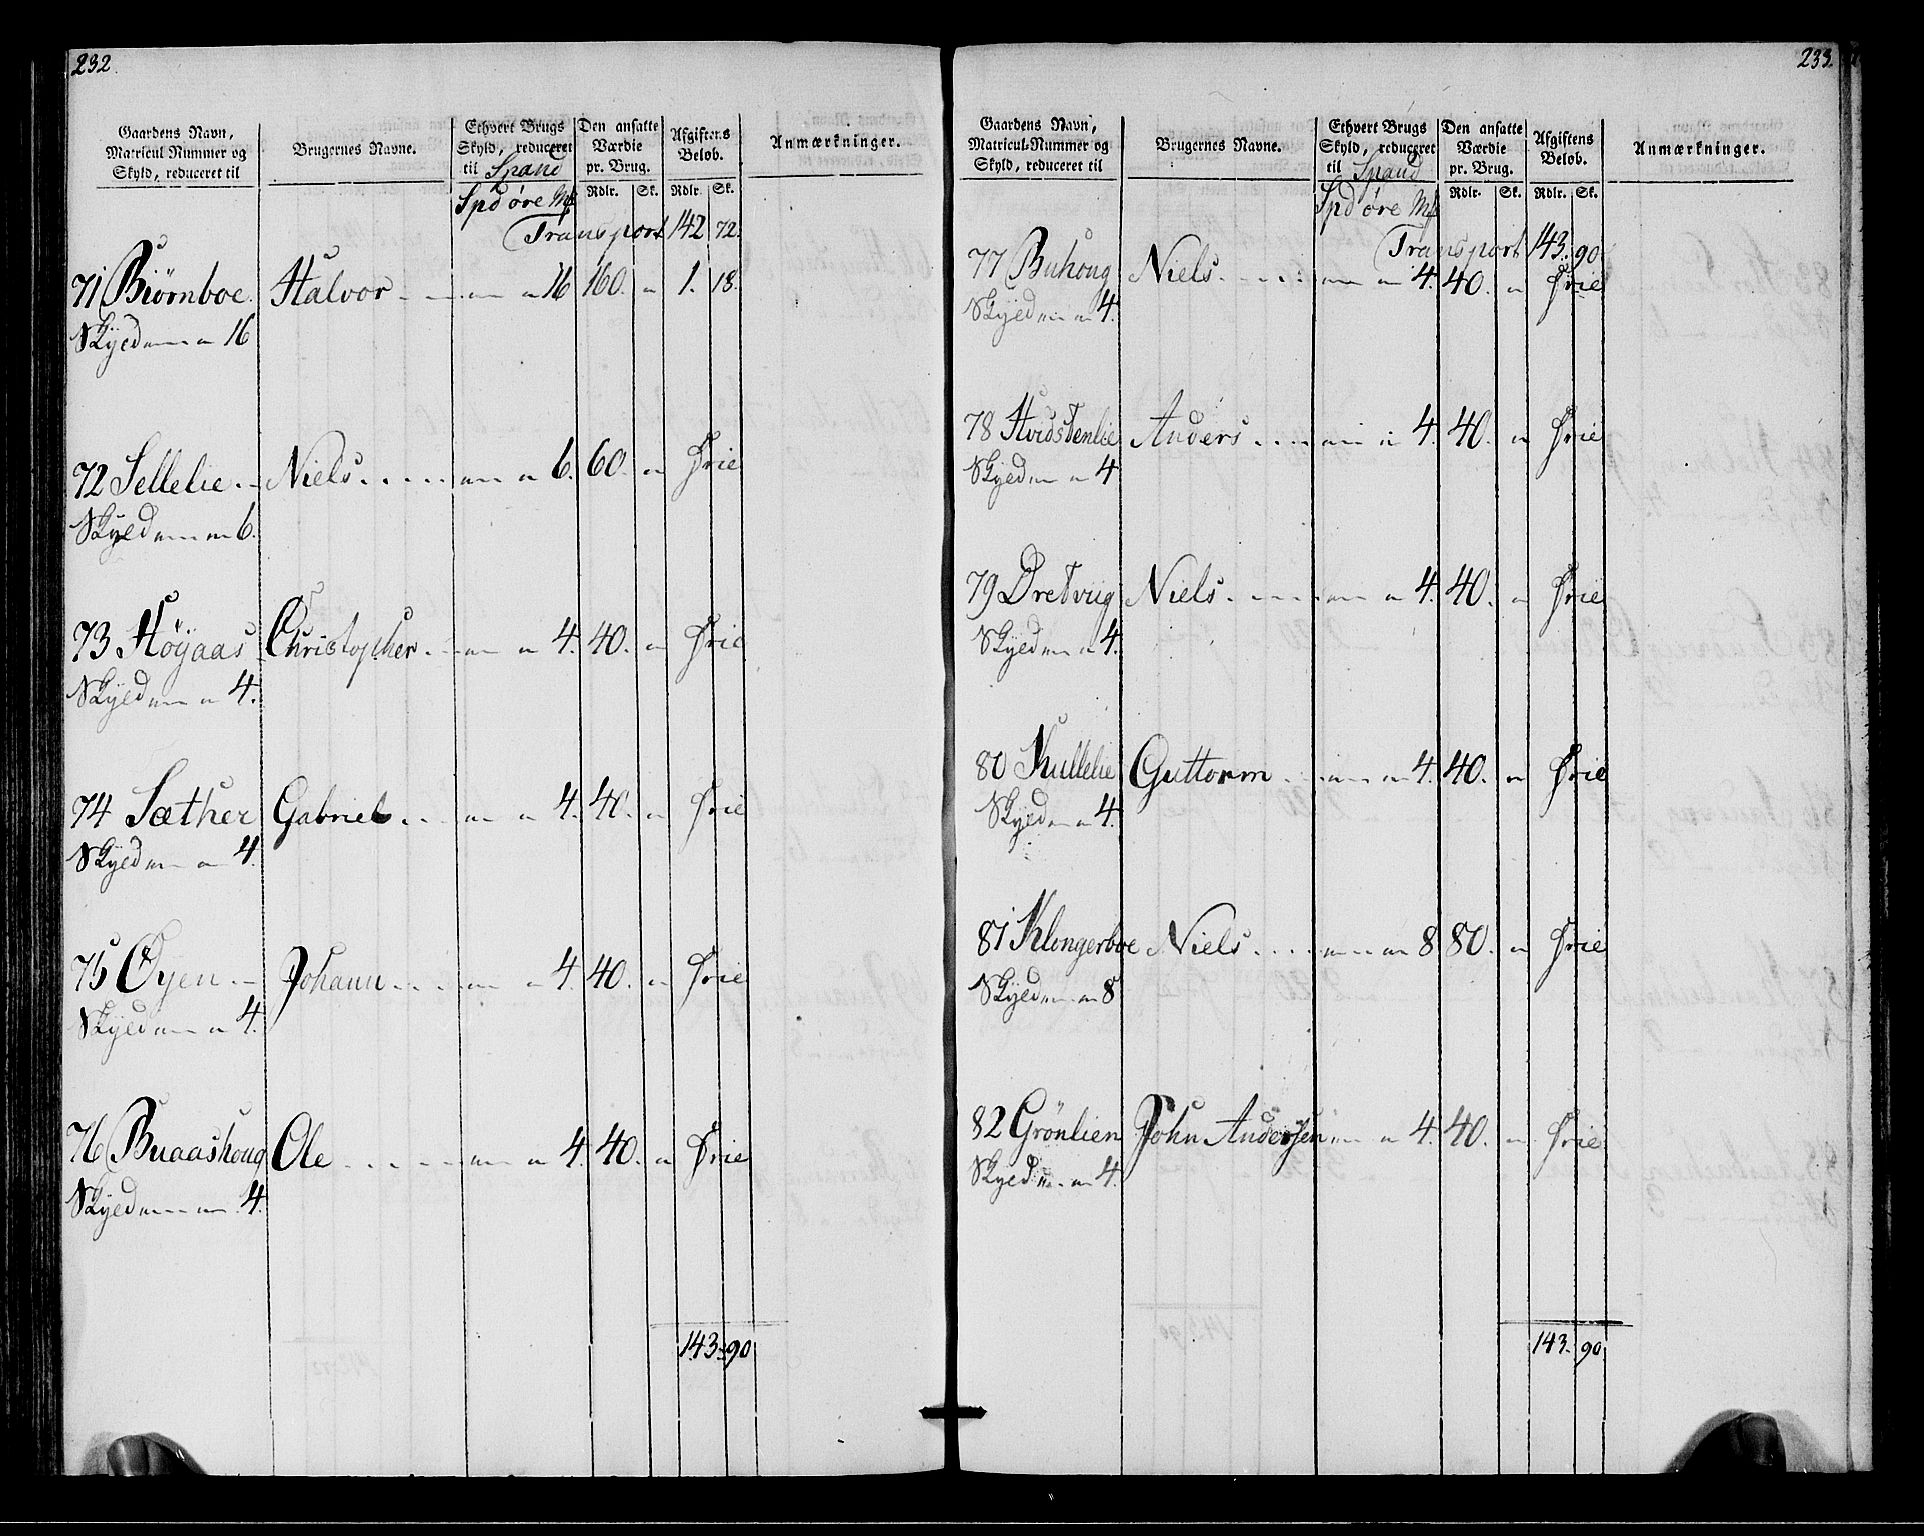 232.
Gaardens Navn, Matricul Nummer og Skyld, reduceret til
Brugernes Navne.
Ethvert Brugs Skyld, reduceret til Spand
Den ansatte Værdie pr. Brug.
Afgiftens Beløb.
Anmærkninger.
Spd øre Mk Rdlr. Sk. Rdlr. Sk.
Transport 142 72.
71 Biørnboe. Halvor 16 160. 1. 18.
Skyld 16
72 Sellelie Niels 6. 60. frie
Skyld 6.
73 Høÿaas Christopher 4. 40. frie
Skyld 4.
74 Sæther Gabriel 4. 40. frie
Skyld 4.
75 Øyen Johann 4. 40. frie
Skyld 4.
76 Buaashoug Ole 4. 40. frie
Skyld 4.
143 90
233.
Gaardens Navn, Matricul-Nummer og Skyld, reduceret til
Brugernes Navne.
Ethvert Brugs Skyld, reduceret til Spand
Den ansatte Værdie pr. Brug.
Afgiftens Beløb.
Anmærkninger.
Spd øre Mk Rdlr. Sk. Rdlr. Sk.
Transport 143. 90
77 Buhoug Niels 4. 40. frie
Skyld 4.
78 Hvidstenlie Anders 4. 40. frie
Skyld 4
79 Dretviig Niels 4. 40. frie
Skyld 4.
80 Kullelie Guttorm 4. 40. frie
Skyld 4.
81 Klongerboe Niels 8 80. frie
Skyld 8
82 Grönlien John Andersen 4. 40. frie
Skyld 4.
143. 90